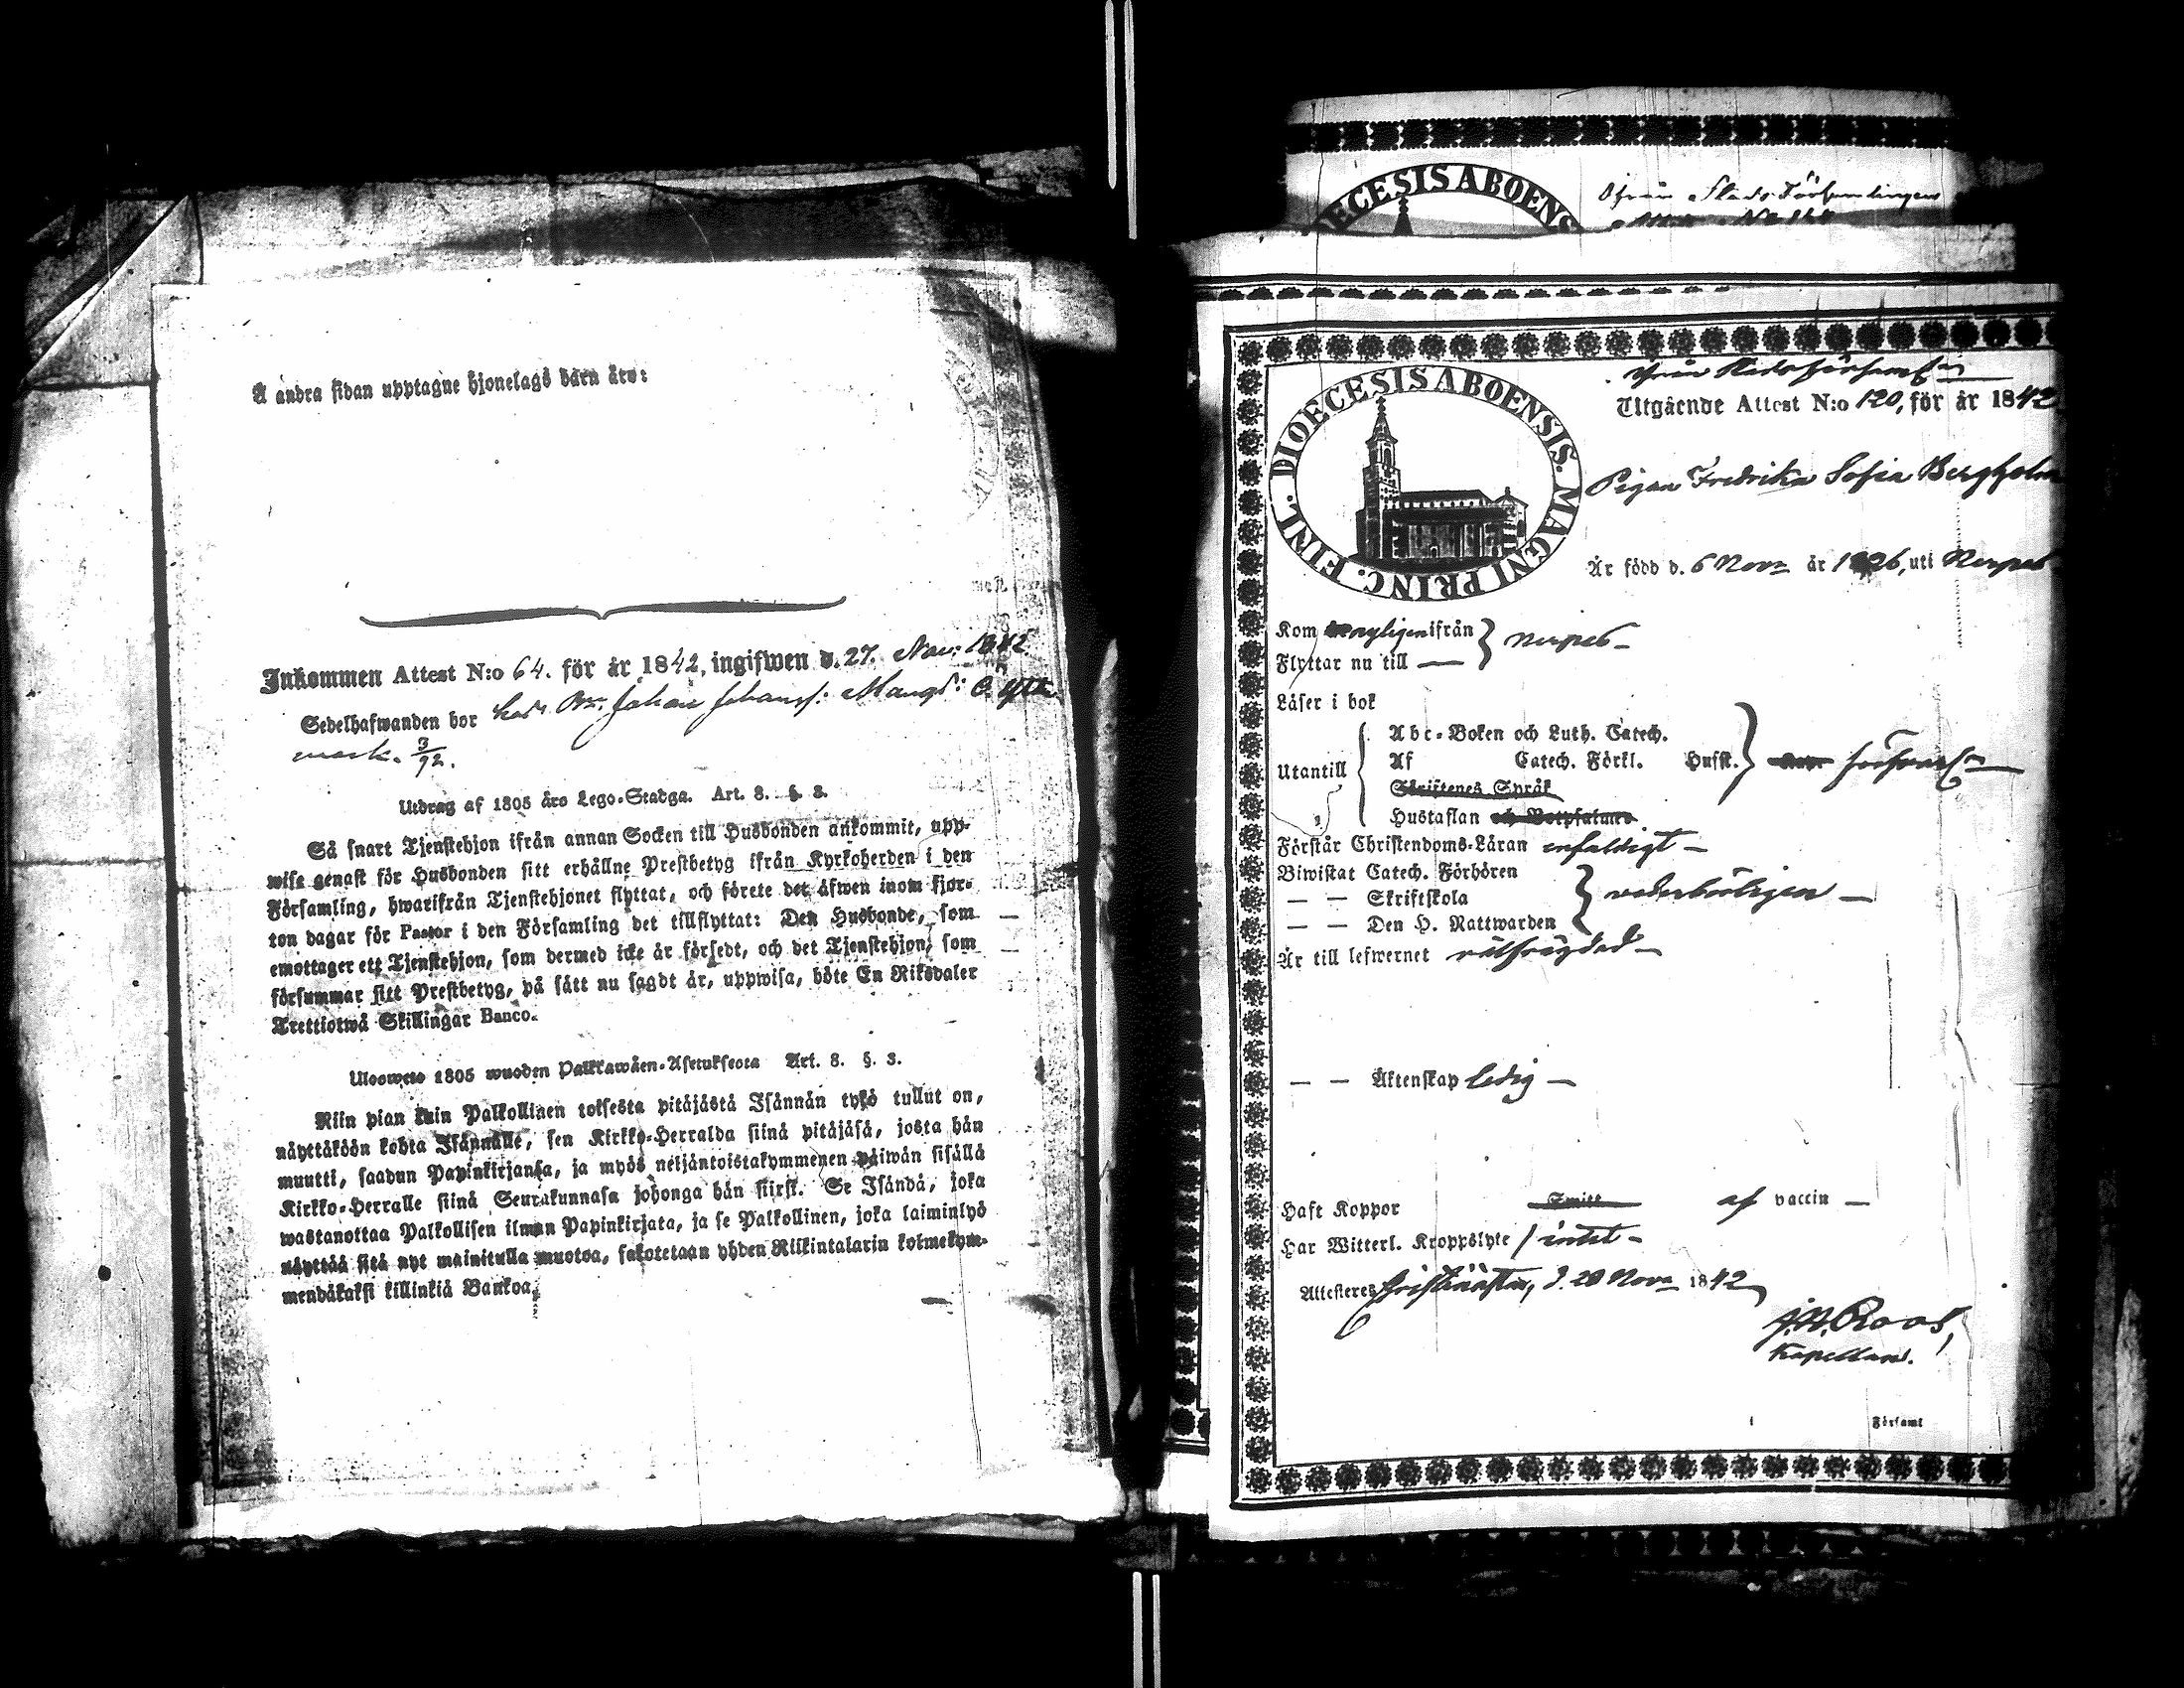 Å andra sidan upptagne hjonelags barn äro:
Inkommen Attest N:o 64. för år 1842, ingifwen d. 27. Nov: 1842
Sedelhafwanden bor hos Johan Johanss:
mark. 3/92.
Utdrag af 1805 års Lego-Stadga. Art. 8. §. 3.
Så snart Tjenstehjon ifrån annan Socken till Husbonden ankommit, upp-
wise genast för Husbonden sitt erhållne Prestbetyg ifrån Kyrkoherden i den
Församling, hwarifrån Tjenstehjonet flyttat, och förete det äfwen inom fjor-
ton dagar för Pastor i den Församling det tillflyttat: Den Husbonde, som
emottager ett Tjenstehjon, som dermed icke är försedt, och det Tjenstehjon, som
försummar sitt Prestbetyg, på sätt nu sagdt är, uppwisa, böte En Riksdaler
Trettiotwå Skillingar Banco.
Ulosweto 1805 wuoden Palkkawäen-Asetuksesta Art. 8. §. 3.
Niin pian kuin Palkollinen toisesta pitäjästä Isännän tykö tullut on,
näyttäköön kohta Isännälle, sen Kirkko-Herralda siinä pitäjäsä, josta hän
muutti, saadun Papinkirjansa, ja myös neljäntoistakymmenen päiwän sisällä
Kirkko-Herralle siinä Seurakunnasa johonga hän siirst. Se Isändä, joka
wastanottaa Palkollisen ilman Papinkirjata, ja se Palkollinen, joka laiminlyö
näyttää sitä nyt mainitulla muotoa, sakotetaan yhden Riikintalarin kolmekym-
mendäkaksi killinkiä Bankoa.
DIOECESIS ABOENS
Ifrån Stads Församlingen
Ifrån Stadsförsaml:n
Utgående Attest N:o 120, för år 1842
DIOECESIS ABOENSIS. MAGNI PRINC. FINL.
Pigan Fredrika Sofia Bergholm
Är född d. 6 Nov:r år 1826, uti Nerpes
Kom nyligen ifrån } Nerpes
Flyttar nu till —
Läser i bok
Abc-Boken och Luth. Catech.
Utantill Af Catech. Förkl. Hufst. försvarl:n
Skriftenes Språk
Hustaflan och Botpsalmer
Förstår Christendoms-Läran enfaldigt —
Biwistat Catech. Förhören
— — Skriftskola } vederbörligen —
— — Den H. Nattwarden
Är till lefwernet välfrägdad —
— — Äktenskap ledig —
Haft Koppor Smitt af vaccin —
Har Witterl. Kroppslyte intet —
Attesteres Christinestad, d. 20 Nov:r 1842
J. N. Roos,
Kapellan.
Församl